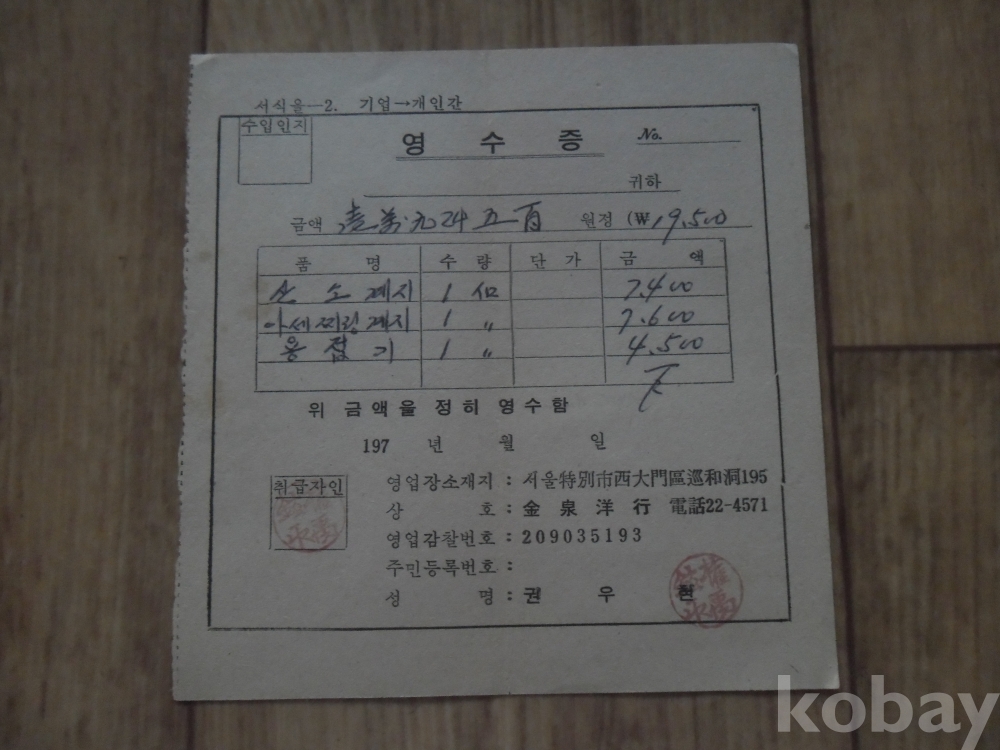 서식을—2. 기업→개인간
수입인지
영 수 증 No.
귀하
금액 壹萬九千五百 원정 (₩19,500
품 명 수 량 단 가 금 액
산소게지 1 仙 7.400
아세찌링게지 1 〃 7.600
용접기 1 〃 4.500
위 금액을 정히 영수함
197 년 월 일
취급자인
영업장소재지 : 서울特別市西大門區巡和洞195
상 호 : 金泉洋行 電話22-4571
영업감찰번호 : 209035193
주민등록번호 :
성 명 : 권 우 현
kobay